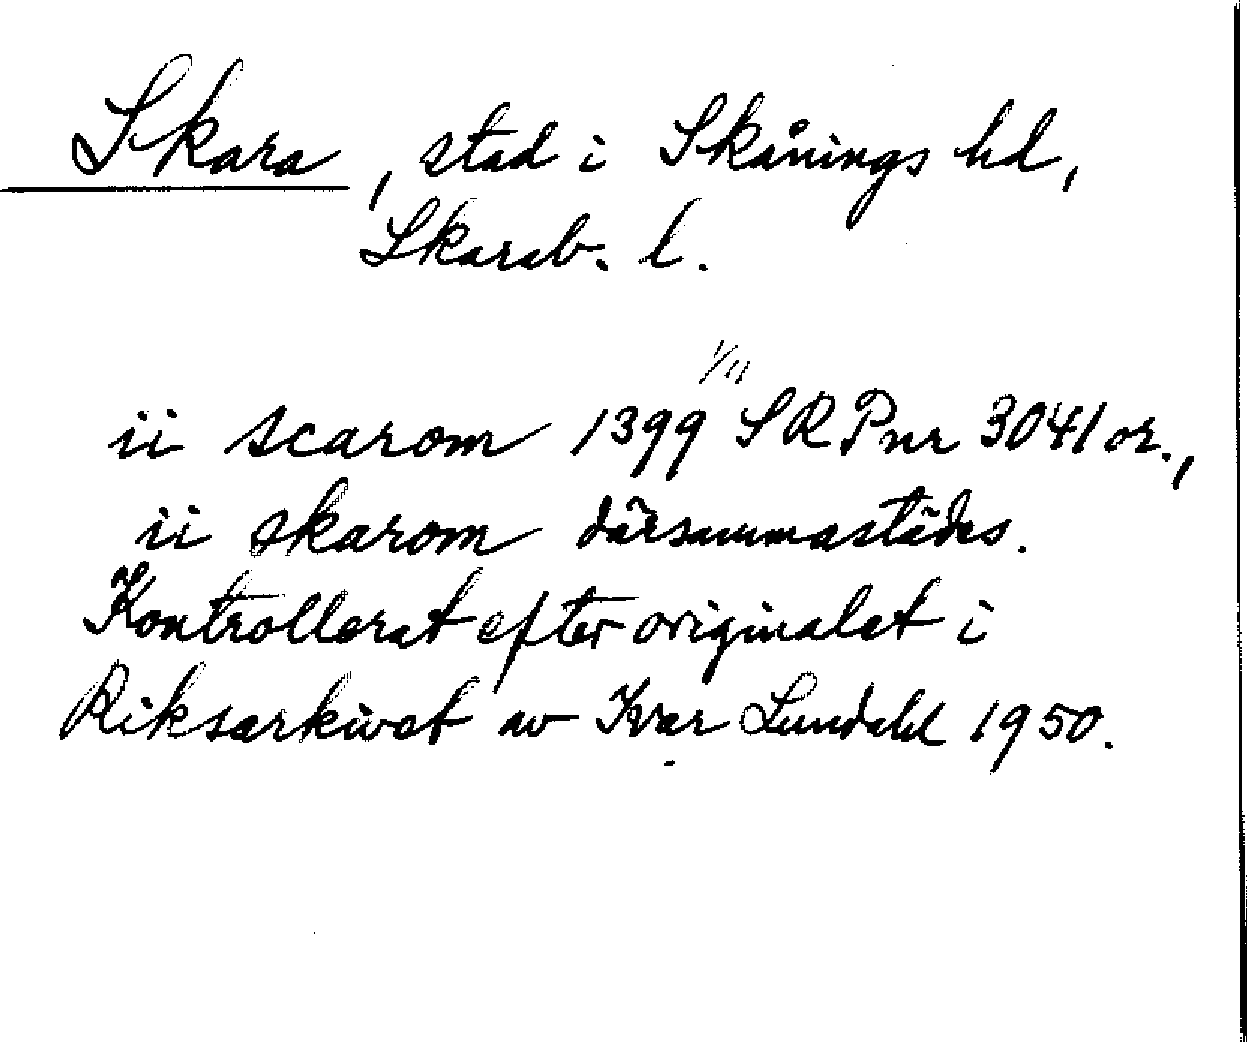 Skara, stad i Skånings hd,
Skarab. l.
ii scarom 1399 1/11 SRPnr 3041 or.,
ii skarom därsammastädes.
Kontrollerat efter originalet i
Riksarkivet av Ivar Lundahl 1950.